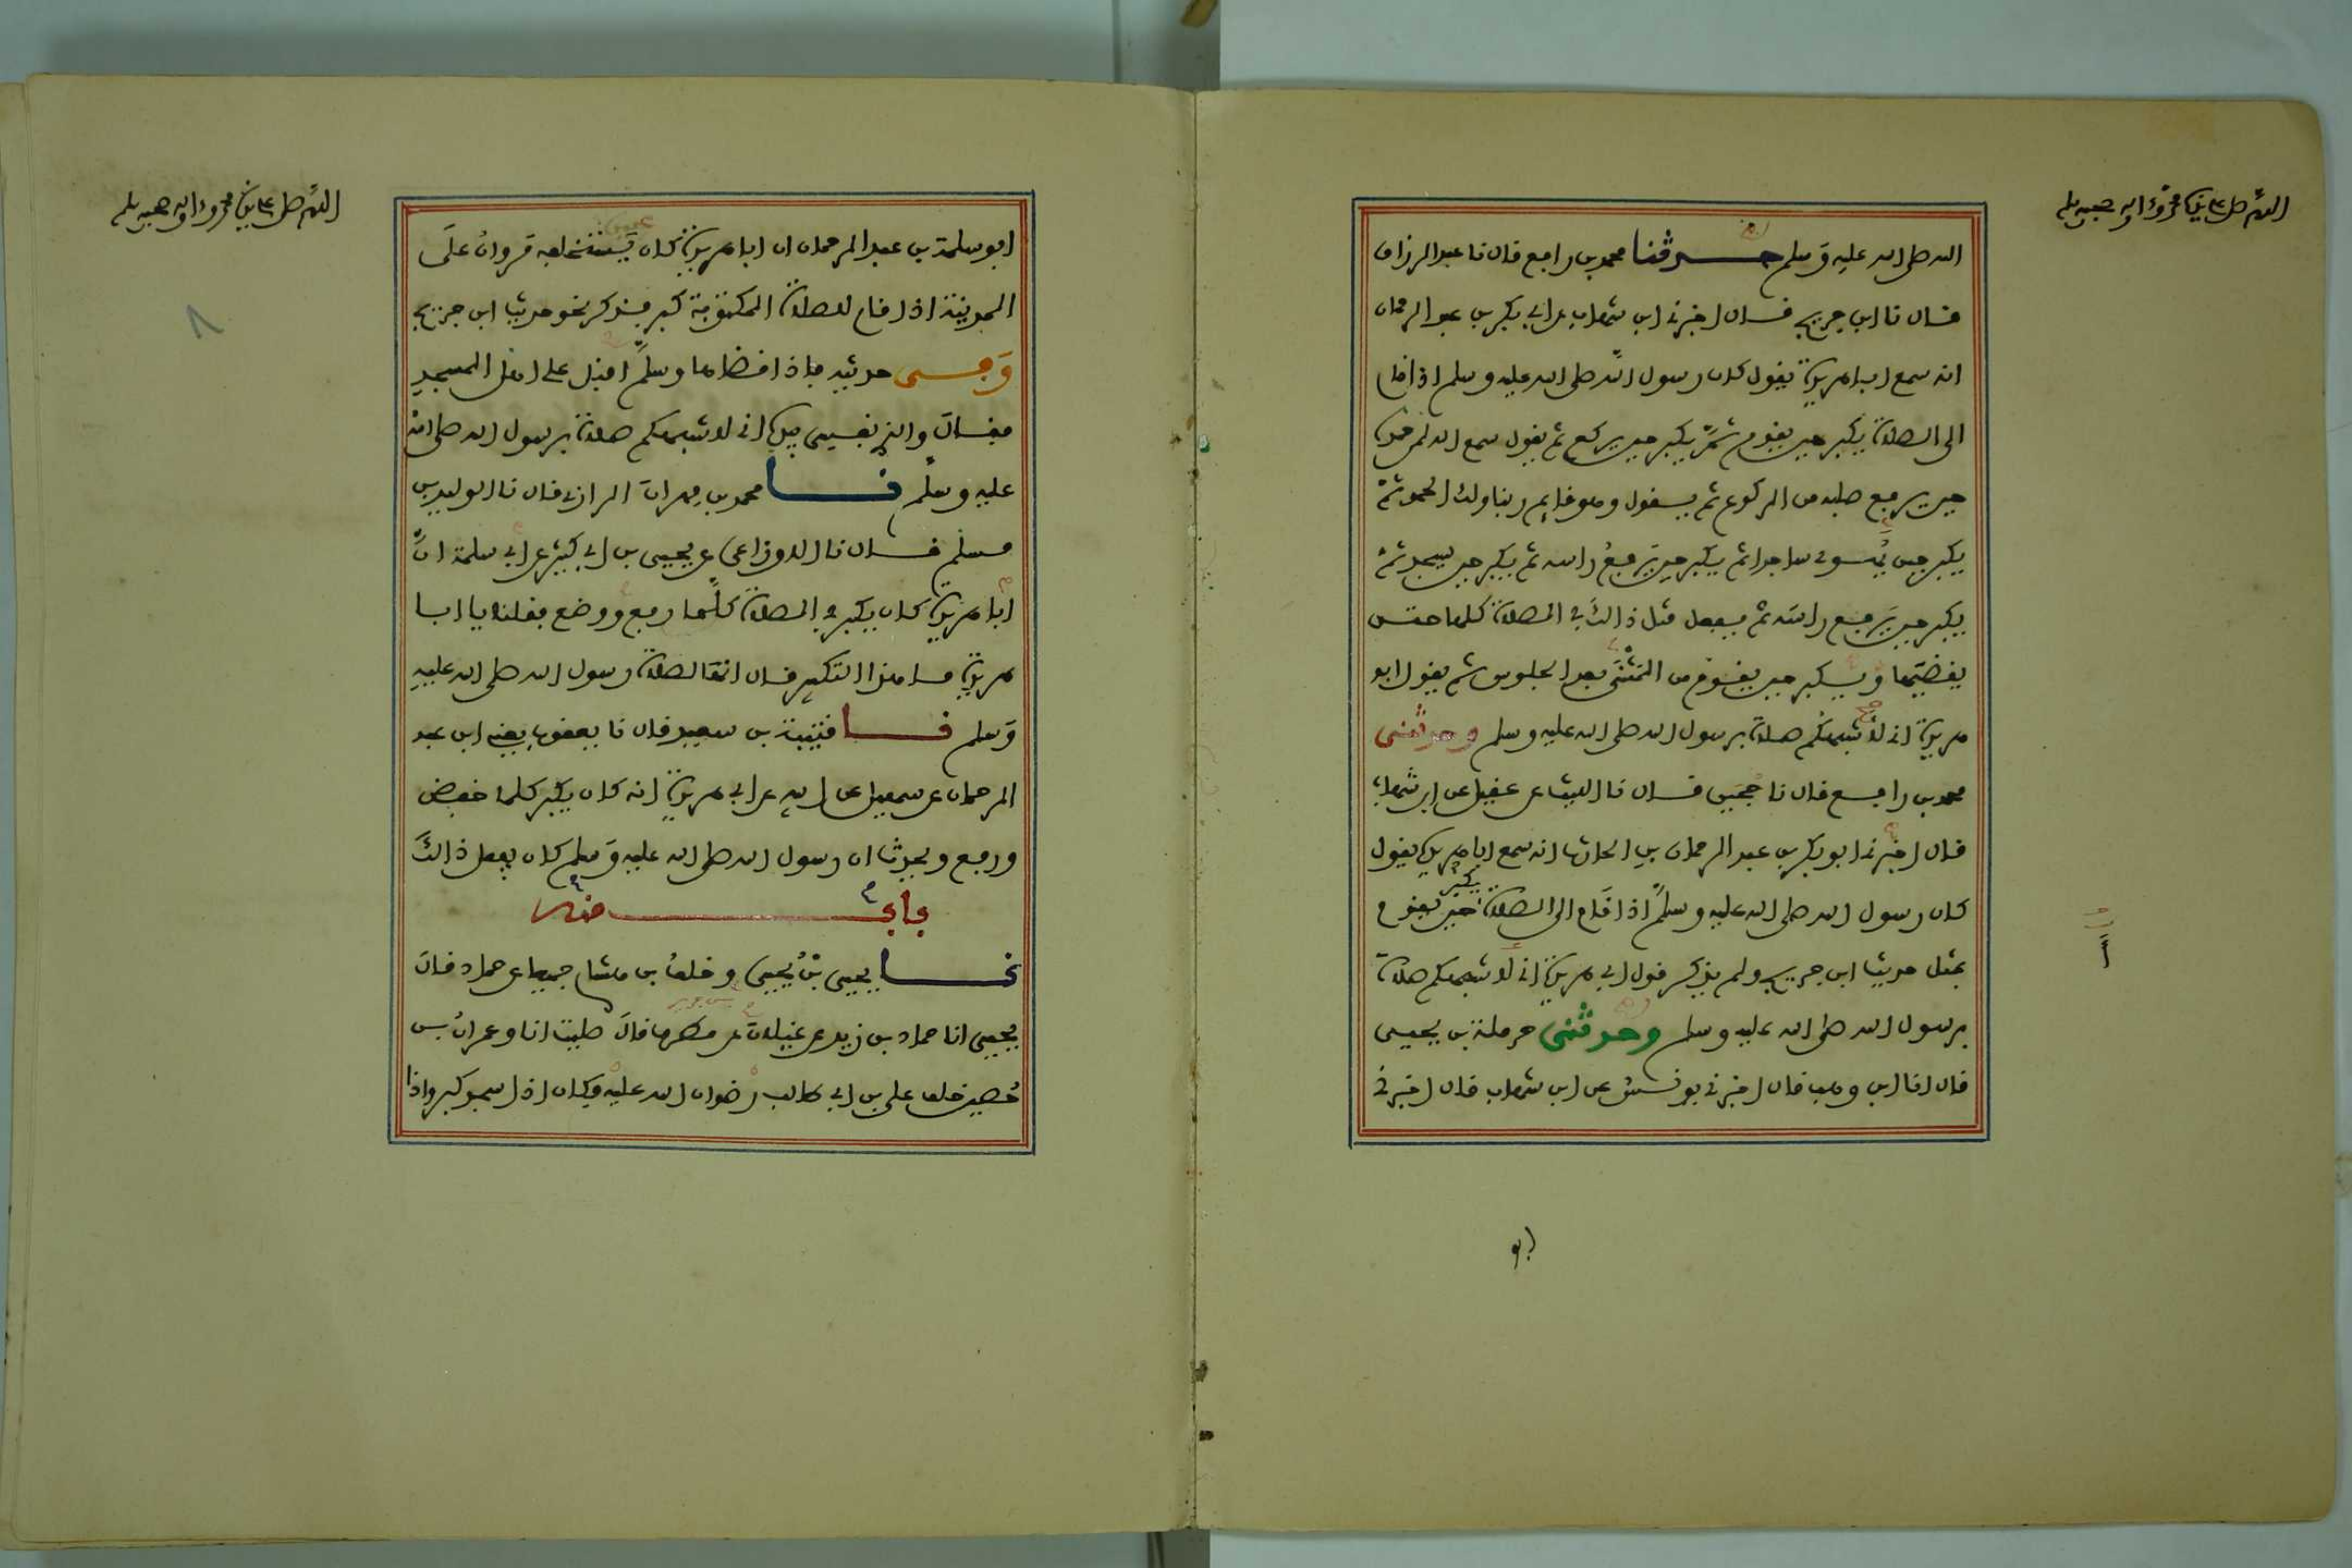 اللهم صل على سيدنا محمد وءاله وصحبه وسلم
الله صلى الله عليه وسلم حدثنا محمد بن رافع قال نا عبد الرزاق
قال نا ابن جريج قال اخبرني ابن شهاب عن ابي بكر بن عبد الرحمان
انه سمع ابا هريرة يقول كان رسول الله صلى الله عليه وسلم اذا قام
الى الصلاة يكبر حين يقوم ثم يكبر حين يركع ثم يقول سمع الله لمن حمده
حين يرفع صلبه من الركوع ثم يقول وهو قايم ربنا ولك الحمد ثم
يكبر حين يهوي ساجدا ثم يكبر حين يرفع راسه ثم يكبر حين يسجد ثم
يكبر حين يرفع راسه ثم يفعل مثل ذالك في الصلاة كلها حتى
يقضيها ويكبر حين يقوم من المثنى بعد الجلوس ثم يقول ابو
هريرة اني لاشبهكم صلاة برسول الله صلى الله عليه وسلم وحدثني
محمد بن رافع قال نا حجين قال نا الليث عن عقيل عن ابن شهاب
قال اخبرني ابو بكر بن عبد الرحمان بن الحارث انه سمع ابا هريرة يقول
كان رسول الله صلى الله عليه وسلم اذا قام الى الصلاة يكبر حين يقوم
بمثل حديث ابن جريج ولم يذكر قول ابي هريرة اني لاشبهكم صلاة
برسول الله صلى الله عليه وسلم وحدثني حرملة بن يحيى
قال انا ابن وهب قال اخبرني يونس عن ابن شهاب قال اخبرني
ابو
اللهم صل على سيدنا محمد وءاله وصحبه وسلم
ابو سلمة بن عبد الرحمان ان ابا هريرة كان يستخلفه مروان على
المدينة اذا قام للصلاة المكتوبة كبر فذكر نحو حديث ابن جريج
وفي حديثه فاذا قضاها وسلم اقبل على اهل المسجد
فقال والذي نفسي بيده اني لاشبهكم صلاة برسول الله صلى الله
عليه وسلم نا محمد بن مهران الرازي قال نا الوليد بن
مسلم قال نا الاوزاعي عن يحيى بن ابي كثير عن ابي سلمة ان
ابا هريرة كان يكبر في الصلاة كلما رفع ووضع فقلنا يا ابا
هريرة ما هذا التكبير قال انها لصلاة رسول الله صلى الله عليه
وسلم نا قتيبة بن سعيد قال نا يعقوب يعني ابن عبد
الرحمان عن سهيل عن ابيه عن ابي هريرة انه كان يكبر كلما خفض
ورفع ويحدث ان رسول الله صلى الله عليه وسلم كان يفعل ذالك
باب منه
نا يحيى بن يحيى وخلف بن هشام جميعا عن حماد قال
يحيى انا حماد بن زيد عن غيلان عن مطرف قال صليت انا وعمران بن
حصين خلف علي بن ابي طالب رضوان الله عليه فكان اذا سجد كبر واذا
٨